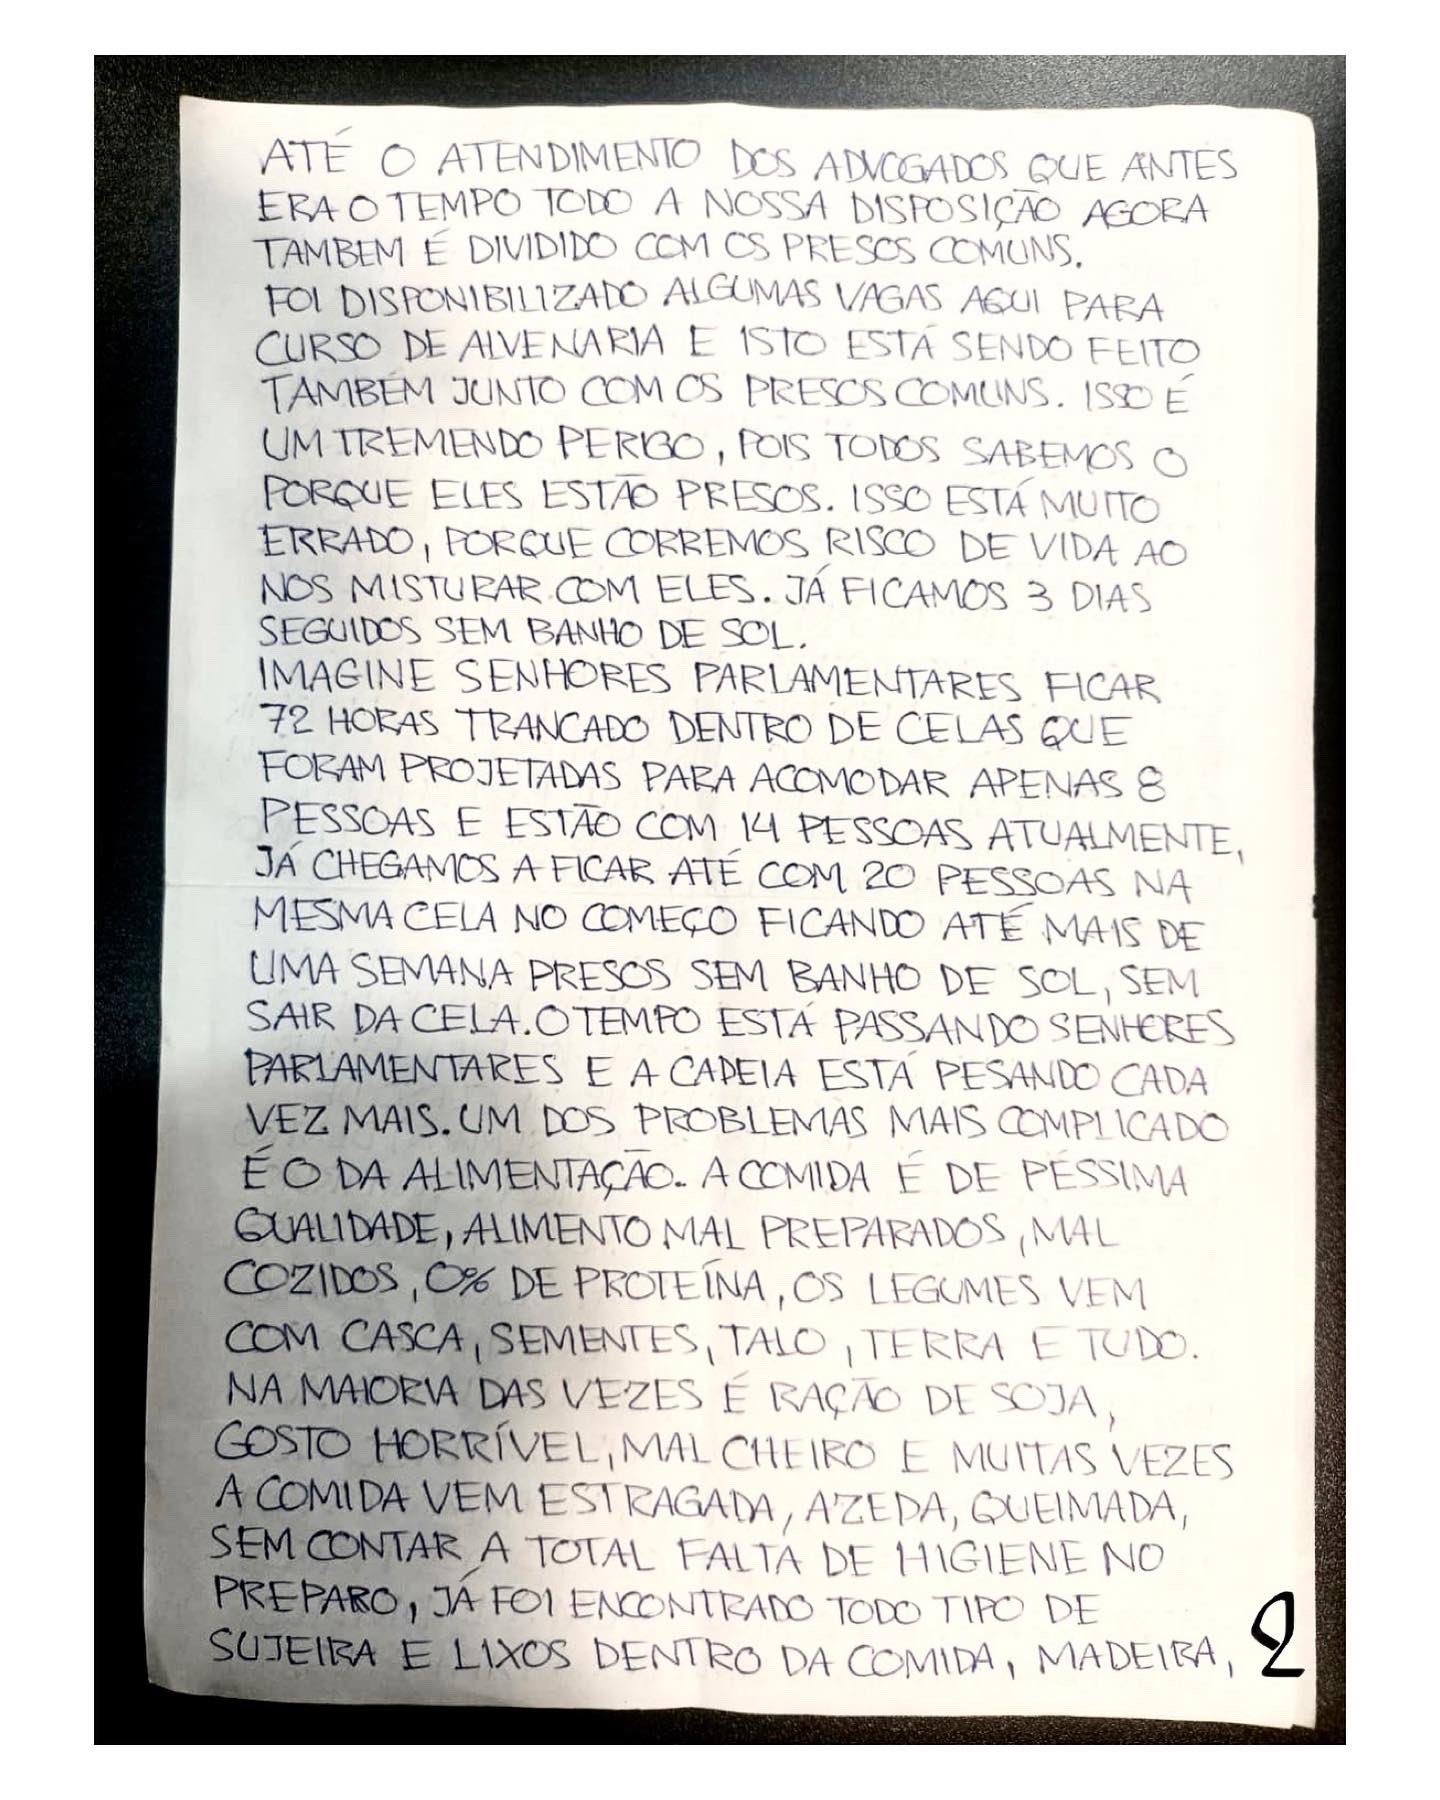 ATÉ O ATENDIMENTO DOS ADVOGADOS QUE ANTES
ERA O TEMPO TODO A NOSSA DISPOSIÇÃO AGORA
TAMBEM É DIVIDIDO COM OS PRESOS COMUNS.
FOI DISPONIBILIZADO ALGUMAS VAGAS AQUI PARA
CURSO DE ALVENARIA E ISTO ESTÁ SENDO FEITO
TAMBÉM JUNTO COM OS PRESOS COMUNS. ISSO É
UM TREMENDO PERIGO, POIS TODOS SABEMOS O
PORQUE ELES ESTÃO PRESOS. ISSO ESTÁ MUITO
ERRADO, PORQUE CORREMOS RISCO DE VIDA AO
NOS MISTURAR COM ELES. JÁ FICAMOS 3 DIAS
SEGUIDOS SEM BANHO DE SOL.
IMAGINE SENHORES PARLAMENTARES FICAR
72 HORAS TRANCADO DENTRO DE CELAS QUE
FORAM PROJETADAS PARA ACOMODAR APENAS 8
PESSOAS E ESTÃO COM 14 PESSOAS ATUALMENTE,
JÁ CHEGAMOS A FICAR ATÉ COM 20 PESSOAS NA
MESMA CELA NO COMEÇO FICANDO ATÉ MAIS DE
UMA SEMANA PRESOS SEM BANHO DE SOL, SEM
SAIR DA CELA. O TEMPO ESTÁ PASSANDO SENHORES
PARLAMENTARES E A CADEIA ESTÁ PESANDO CADA
VEZ MAIS. UM DOS PROBLEMAS MAIS COMPLICADO
É O DA ALIMENTAÇÃO. A COMIDA É DE PÉSSIMA
QUALIDADE, ALIMENTO MAL PREPARADOS, MAL
COZIDOS, 0% DE PROTEÍNA, OS LEGUMES VEM
COM CASCA, SEMENTES, TALO, TERRA E TUDO.
NA MAIORIA DAS VEZES É RAÇÃO DE SOJA,
GOSTO HORRÍVEL, MAL CHEIRO E MUITAS VEZES
A COMIDA VEM ESTRAGADA, AZEDA, QUEIMADA,
SEM CONTAR A TOTAL FALTA DE HIGIENE NO
PREPARO, JÁ FOI ENCONTRADO TODO TIPO DE
SUJEIRA E LIXOS DENTRO DA COMIDA, MADEIRA,
2